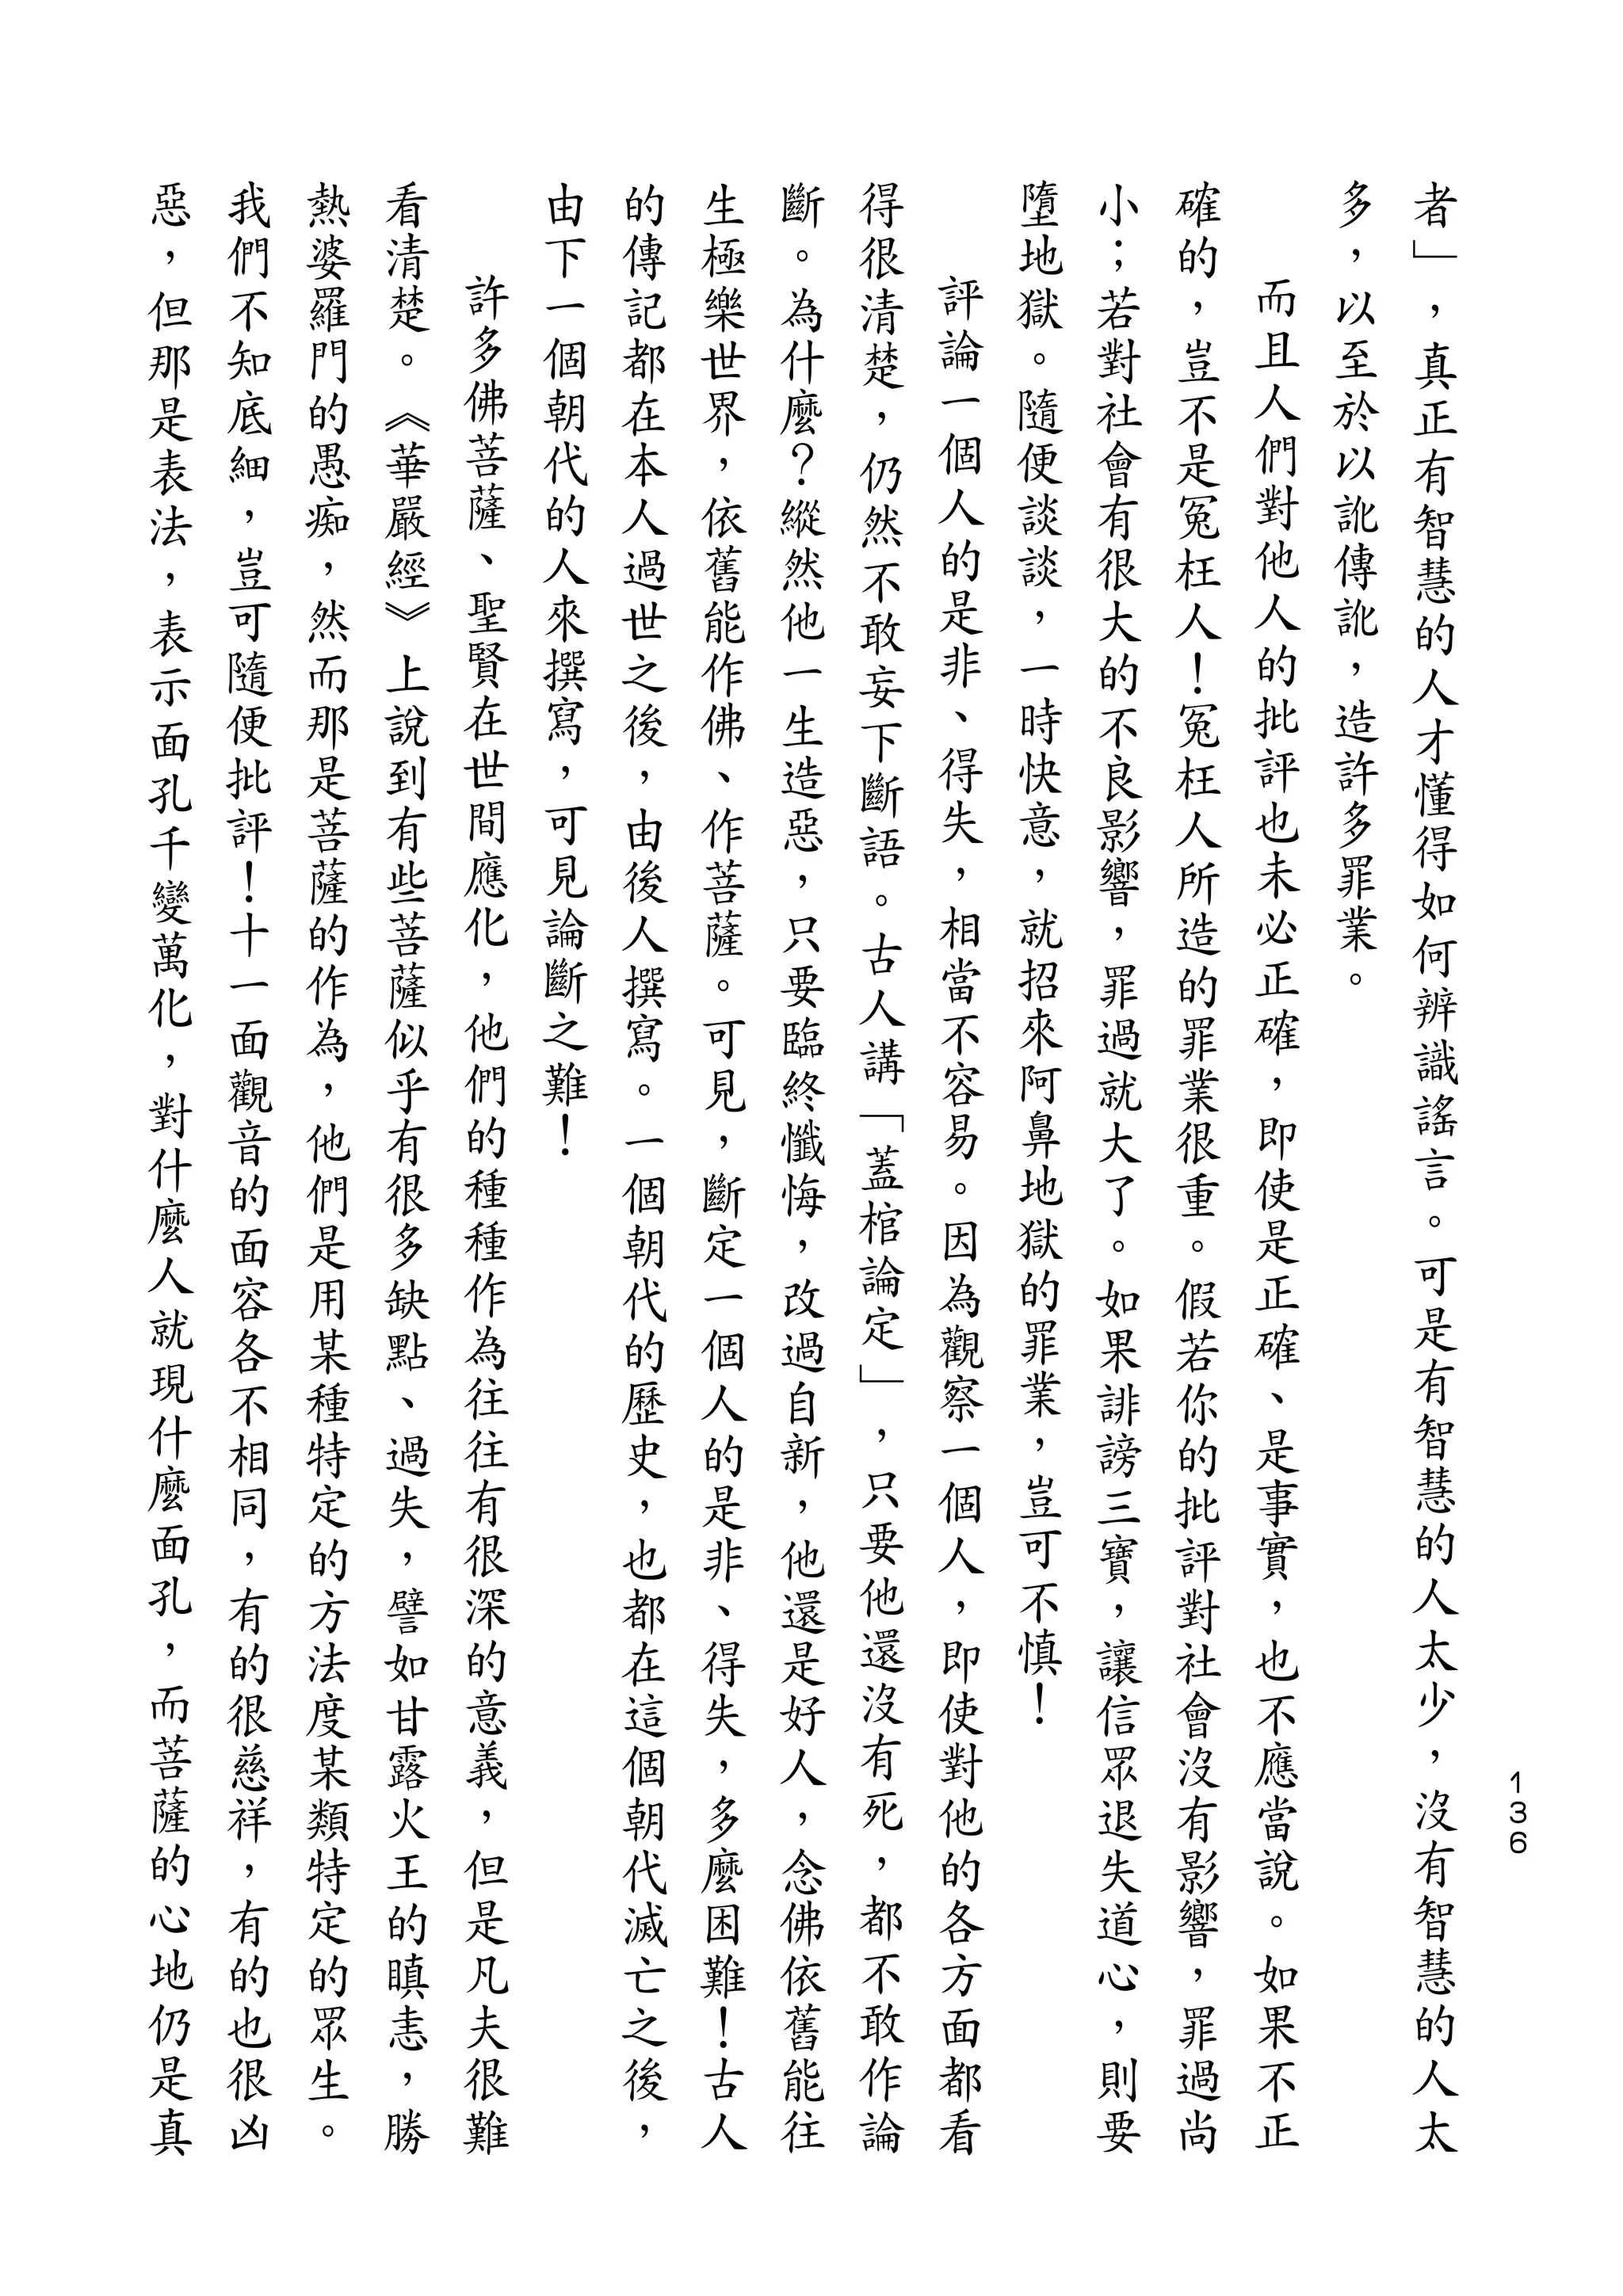 136
者」，真正有智慧的人才懂得如何辨識謠言。可是有智慧的人太少，沒有智慧的人太
多，以至於以訛傳訛，造許多罪業。
而且人們對他人的批評也未必正確，即使是正確、是事實，也不應當說。如果不正
確的，豈不是冤枉人！冤枉人所造的罪業很重。假若你的批評對社會沒有影響，罪過尚
小；若對社會有很大的不良影響，罪過就大了。如果誹謗三寶，讓信眾退失道心，則要
墮地獄。隨便談談，一時快意，就招來阿鼻地獄的罪業，豈可不慎！
評論一個人的是非、得失，相當不容易。因為觀察一個人，即使對他的各方面都看
得很清楚，仍然不敢妄下斷語。古人講「蓋棺論定」，只要他還沒有死，都不敢作論
斷。為什麼？縱然他一生造惡，只要臨終懺悔，改過自新，他還是好人，念佛依舊能往
生極樂世界，依舊能作佛、作菩薩。可見，斷定一個人的是非、得失，多麼困難！古人
的傳記都在本人過世之後，由後人撰寫。一個朝代的歷史，也都在這個朝代滅亡之後，
由下一個朝代的人來撰寫，可見論斷之難！
許多佛菩薩、聖賢在世間應化，他們的種種作為往往有很深的意義，但是凡夫很難
看清楚。《華嚴經》上說到有些菩薩似乎有很多缺點、過失，譬如甘露火王的瞋恚，勝
熱婆羅門的愚痴，然而那是菩薩的作為，他們是用某種特定的方法度某類特定的眾生。
我們不知底細，豈可隨便批評！十一面觀音的面容各不相同，有的很慈祥，有的也很凶
惡，但那是表法，表示面孔千變萬化，對什麼人就現什麼面孔，而菩薩的心地仍是真